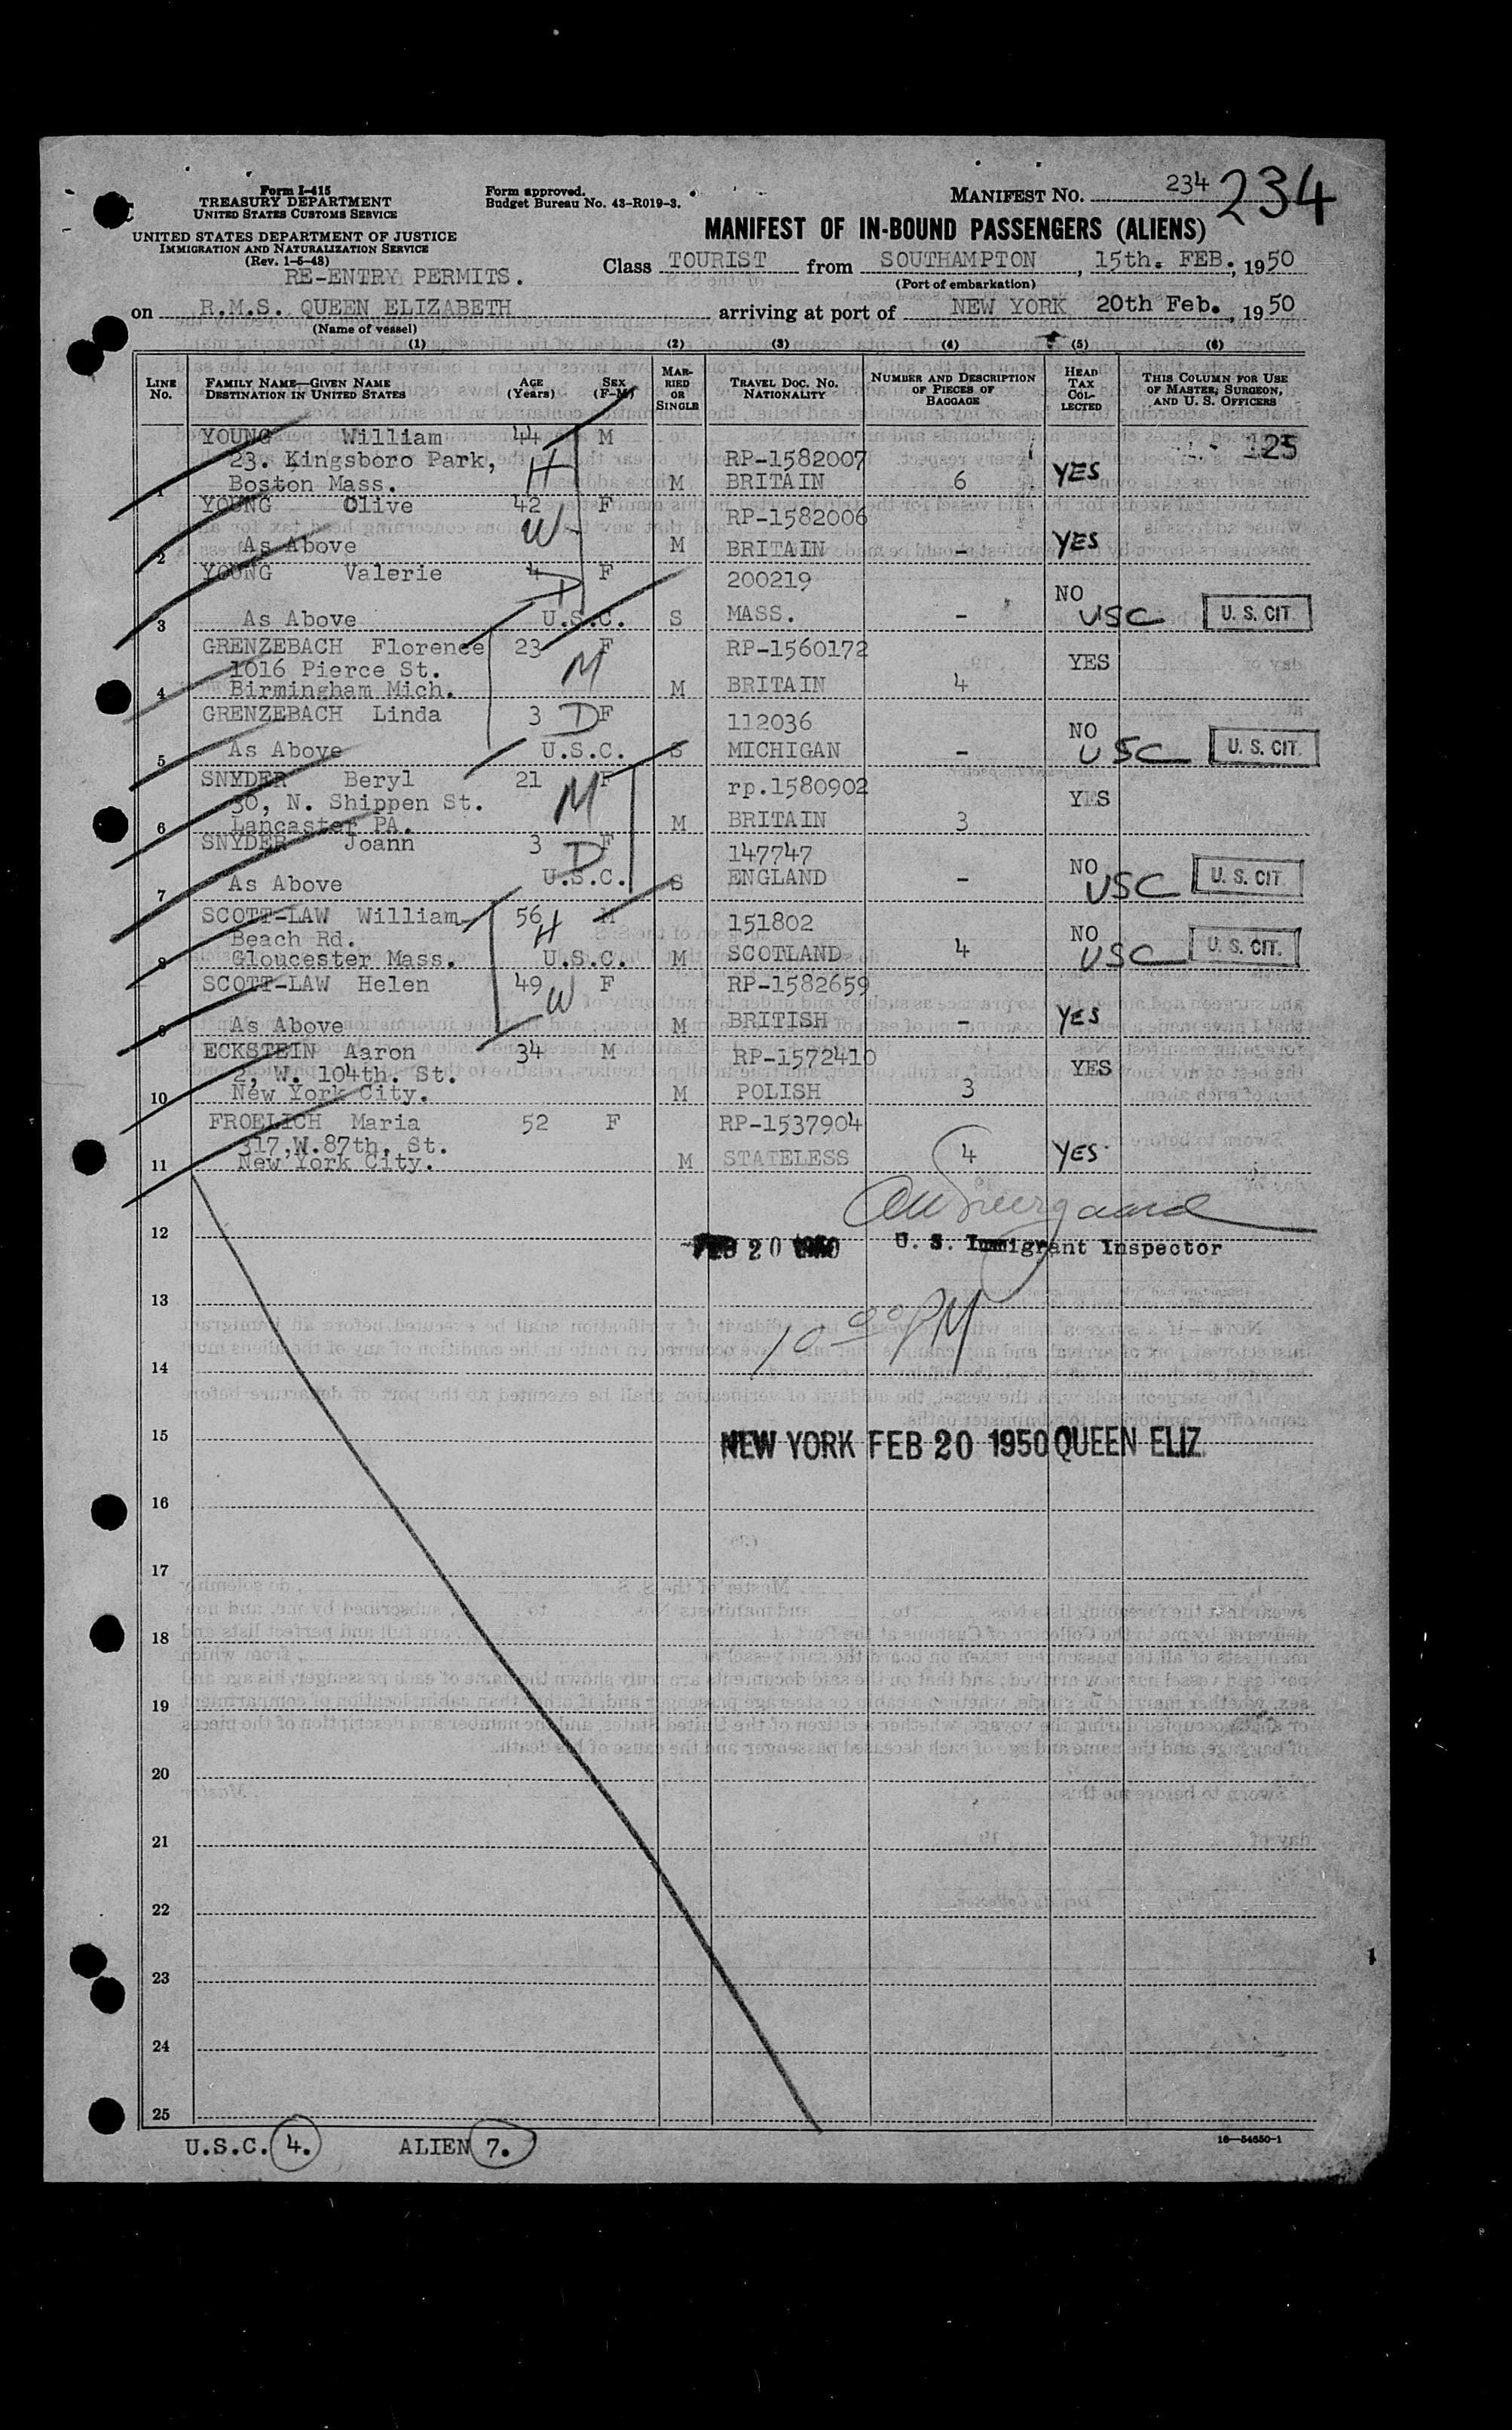 Form I-415
TREASURY DEPARTMENT
UNITED STATES CUSTOMS SERVICE
Form approved.
Budget Bureau No. 43-R019-3.
MANIFEST NO. 234 234
UNITED STATES DEPARTMENT OF JUSTICE
IMMIGRATION AND NATURALIZATION SERVICE
(Rev. 1-6-48)
MANIFEST OF IN-BOUND PASSENGERS (ALIENS)
RE-ENTRY PERMITS.
Class TOURIST from SOUTHAMPTON, 15th. FEB., 1950
(Port of embarkation)
on R.M.S. QUEEN ELIZABETH arriving at port of NEW YORK 20th Feb., 1950
(Name of vessel)
(1) (2) (3) (4) (5) (6)
LINE NO.
FAMILY NAME—GIVEN NAME
DESTINATION IN UNITED STATES
AGE (YEARS)
SEX (F-M)
MARRIED OR SINGLE
TRAVEL DOC. NO.
NATIONALITY
NUMBER AND DESCRIPTION OF PIECES OF BAGGAGE
HEAD TAX COLLECTED
THIS COLUMN FOR USE OF MASTER, SURGEON, AND U. S. OFFICERS
YOUNG William 44 M 125
23. Kingsboro Park, H RP-1582007
1 Boston Mass. M BRITAIN 6 YES
YOUNG Olive 42 F RP-1582006
W
2 As Above M BRITAIN - YES
YOUNG Valerie 4 F 200219
D NO
3 As Above U.S.C. S MASS. - USC U. S. CIT.
GRENZEBACH Florence 23 F RP-1560172
1016 Pierce St. M YES
4 Birmingham Mich. M BRITAIN 4
GRENZEBACH Linda 3 D F 112036
NO
5 As Above U.S.C. S MICHIGAN - USC U. S. CIT.
SNYDER Beryl 21 F rp.1580902
30, N. Shippen St. M YES
6 Lancaster PA. M BRITAIN 3
SNYDER Joann 3 F 147747
D NO
7 As Above U.S.C. S ENGLAND - USC U. S. CIT.
SCOTT-LAW William 56 M 151802
Beach Rd. H NO
8 Gloucester Mass. U.S.C. M SCOTLAND 4 USC U. S. CIT.
SCOTT-LAW Helen 49 F RP-1582659
W
9 As Above M BRITISH - YES
ECKSTEIN Aaron 34 M RP-1572410
2, W. 104th. St. YES
10 New York City. M POLISH 3
FROELICH Maria 52 F RP-1537904
317,W.87th, St.
11 New York City. M STATELESS 4 YES
12
FEB 20 1950 U. S. Immigrant Inspector
13
10 00 PM
14
15 NEW YORK FEB 20 1950 QUEEN ELIZ.
16
17
18
19
20
21
22
23
24
25
U.S.C. 4. ALIEN 7.
16—54650-1